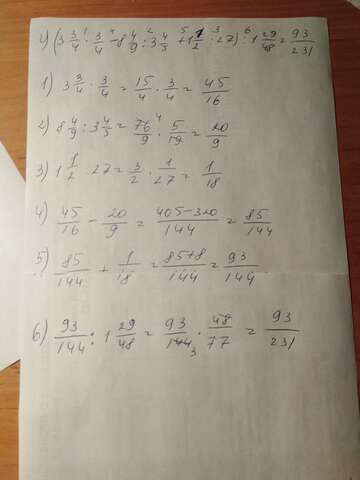 4) (3 3/4 · 3/4 - 8 4/9 : 3 4/5 + 1 1/2 : 27) : 1 29/48 = 93/231
1) 3 3/4 · 3/4 = 15/4 · 3/4 = 45/16
2) 8 4/9 : 3 4/5 = 76/9 · 5/19 = 20/9
3) 1 1/2 : 27 = 3/2 · 1/27 = 1/18
4) 45/16 - 20/9 = 405-320/144 = 85/144
5) 85/144 + 1/18 = 85+8/144 = 93/144
6) 93/144 : 1 29/48 = 93/144 3 · 48/77 = 93/231